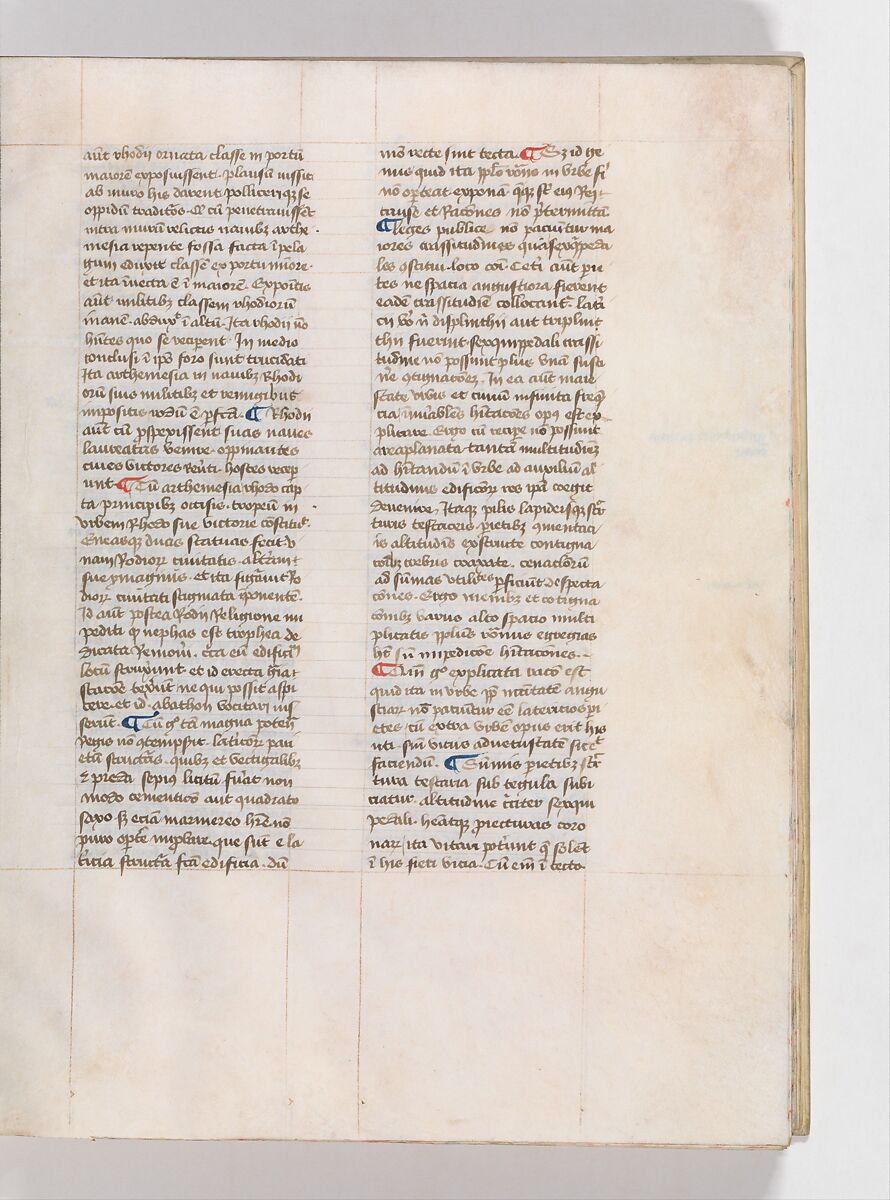 aūt rhodii ornata classe in portū
maiorem exposuissent. plausū iussit
ab muro his darent pollicerique se
oppidū tradituros. Qi cū penetravissent
intra murū relictis navibz arthe
mesia repente fossa facta ī pela
gum eduxit classē ex portu minore.
et ita īvecta ē ī maiorē. Expositis
aūt militibz classem rhodiorū
inanē abduxit ī altū. Ita rhodii nō
hūtes quo se reciperent. In medio
conclusi ī ipso foro sunt trucidati
Ita arthemesia in navibz Rhodi
orū suis militibz et remigibus
impositis rodū ē profecta. ¶ Rhodii
aūt cū prospexissent suas naves
laureatas venire. oppinantes
cives victores reverti. hostes recep
unt. ¶ Tū arthemesia rhodo cap
ta principibz occisis. tropeū in
urbem Rhodo sue victorie constituit.
Eneasqz duas statuas fecit. v
nam Rodiorū civitatis. alteram
sue ymaginis. et ita figuravit Ro
diorū civitati stigmata īponentē.
Id aūt postea Rodii Religione im
pediti qz nephas est trophea de
dicata removeri. circa eū edificiū
locū struxerunt. et id erecta graia
statione texerunt ne qui possit aspi
cere. et id. abathon vocitari ius
serunt. ¶ Cū gº tā magna potentia
Regis nō contempserit. latericiorū pari
etū structuras. quibz et vectigalibz
et preda sepius licitū fuerat non
modo cementicio aut quadrato
saxo. sz eciā marmereo habere nō
puto oportere improbare. que sunt e la
tericia structura facta edificia. dū
modo recte sint tecta. ¶ Sz id ge
nus quid ita populo romano in urbe fi
ri nō oporteat exponam queqz sunt eius Rei
cause et Racōnes nō pretermittā.
¶ leges publice nō patiuntur ma
iores crassitudines quā sexquipeda
les constitui loco comuni. Ceteri aūt parie
tes ne spacia angustiora fierent
eadē crassitudiē collocantur. lateri
cii vero nisi displinthii aut triplint
thii fuerint. sexquippedali crassi
tudine nō possunt plus unā susti
nere contignacōem. In ea aūt maie
state urbis et civium infinita freqē
cia īnumerabiles hītacōes opus est ex
plicare. Ergo cū recipere nō possunt
area planata tantā multitudinē
ad hītandū ī urbe ad auxiliū al
titudinis edificiorū res ipsa coegit
devenire. Itaqz pilis lapideis qz struc
turis testaceis parietibz cementici
is altitudinis exstructe contigna
cōibz crebris coaxate. cenaclorū
ad summas utilitates perficiunt despecta
cōnes. Ergo menibz et cotigna
cōnibz variis alto spacio multi
plicatis populus romanus egregias
habet sine impedicōe hītacōnes.
¶ Quū gº explicata racō est
quid ita in urbe propter necessitatē angu
stiarū nō patiuntur eē latericios pari
etes. cū extra urbē opus erit his
uti sine viciis ad vetustatē sic est
faciendū. ¶ Summis parietibz struc
tura testaria sub tegula subi
ciatur. altitudine circiter sexqui
pedali. habeatqz proiecturas coro
narum ita vitari poterunt que solent
ī his fieri vicia. Cū enī ī tecto